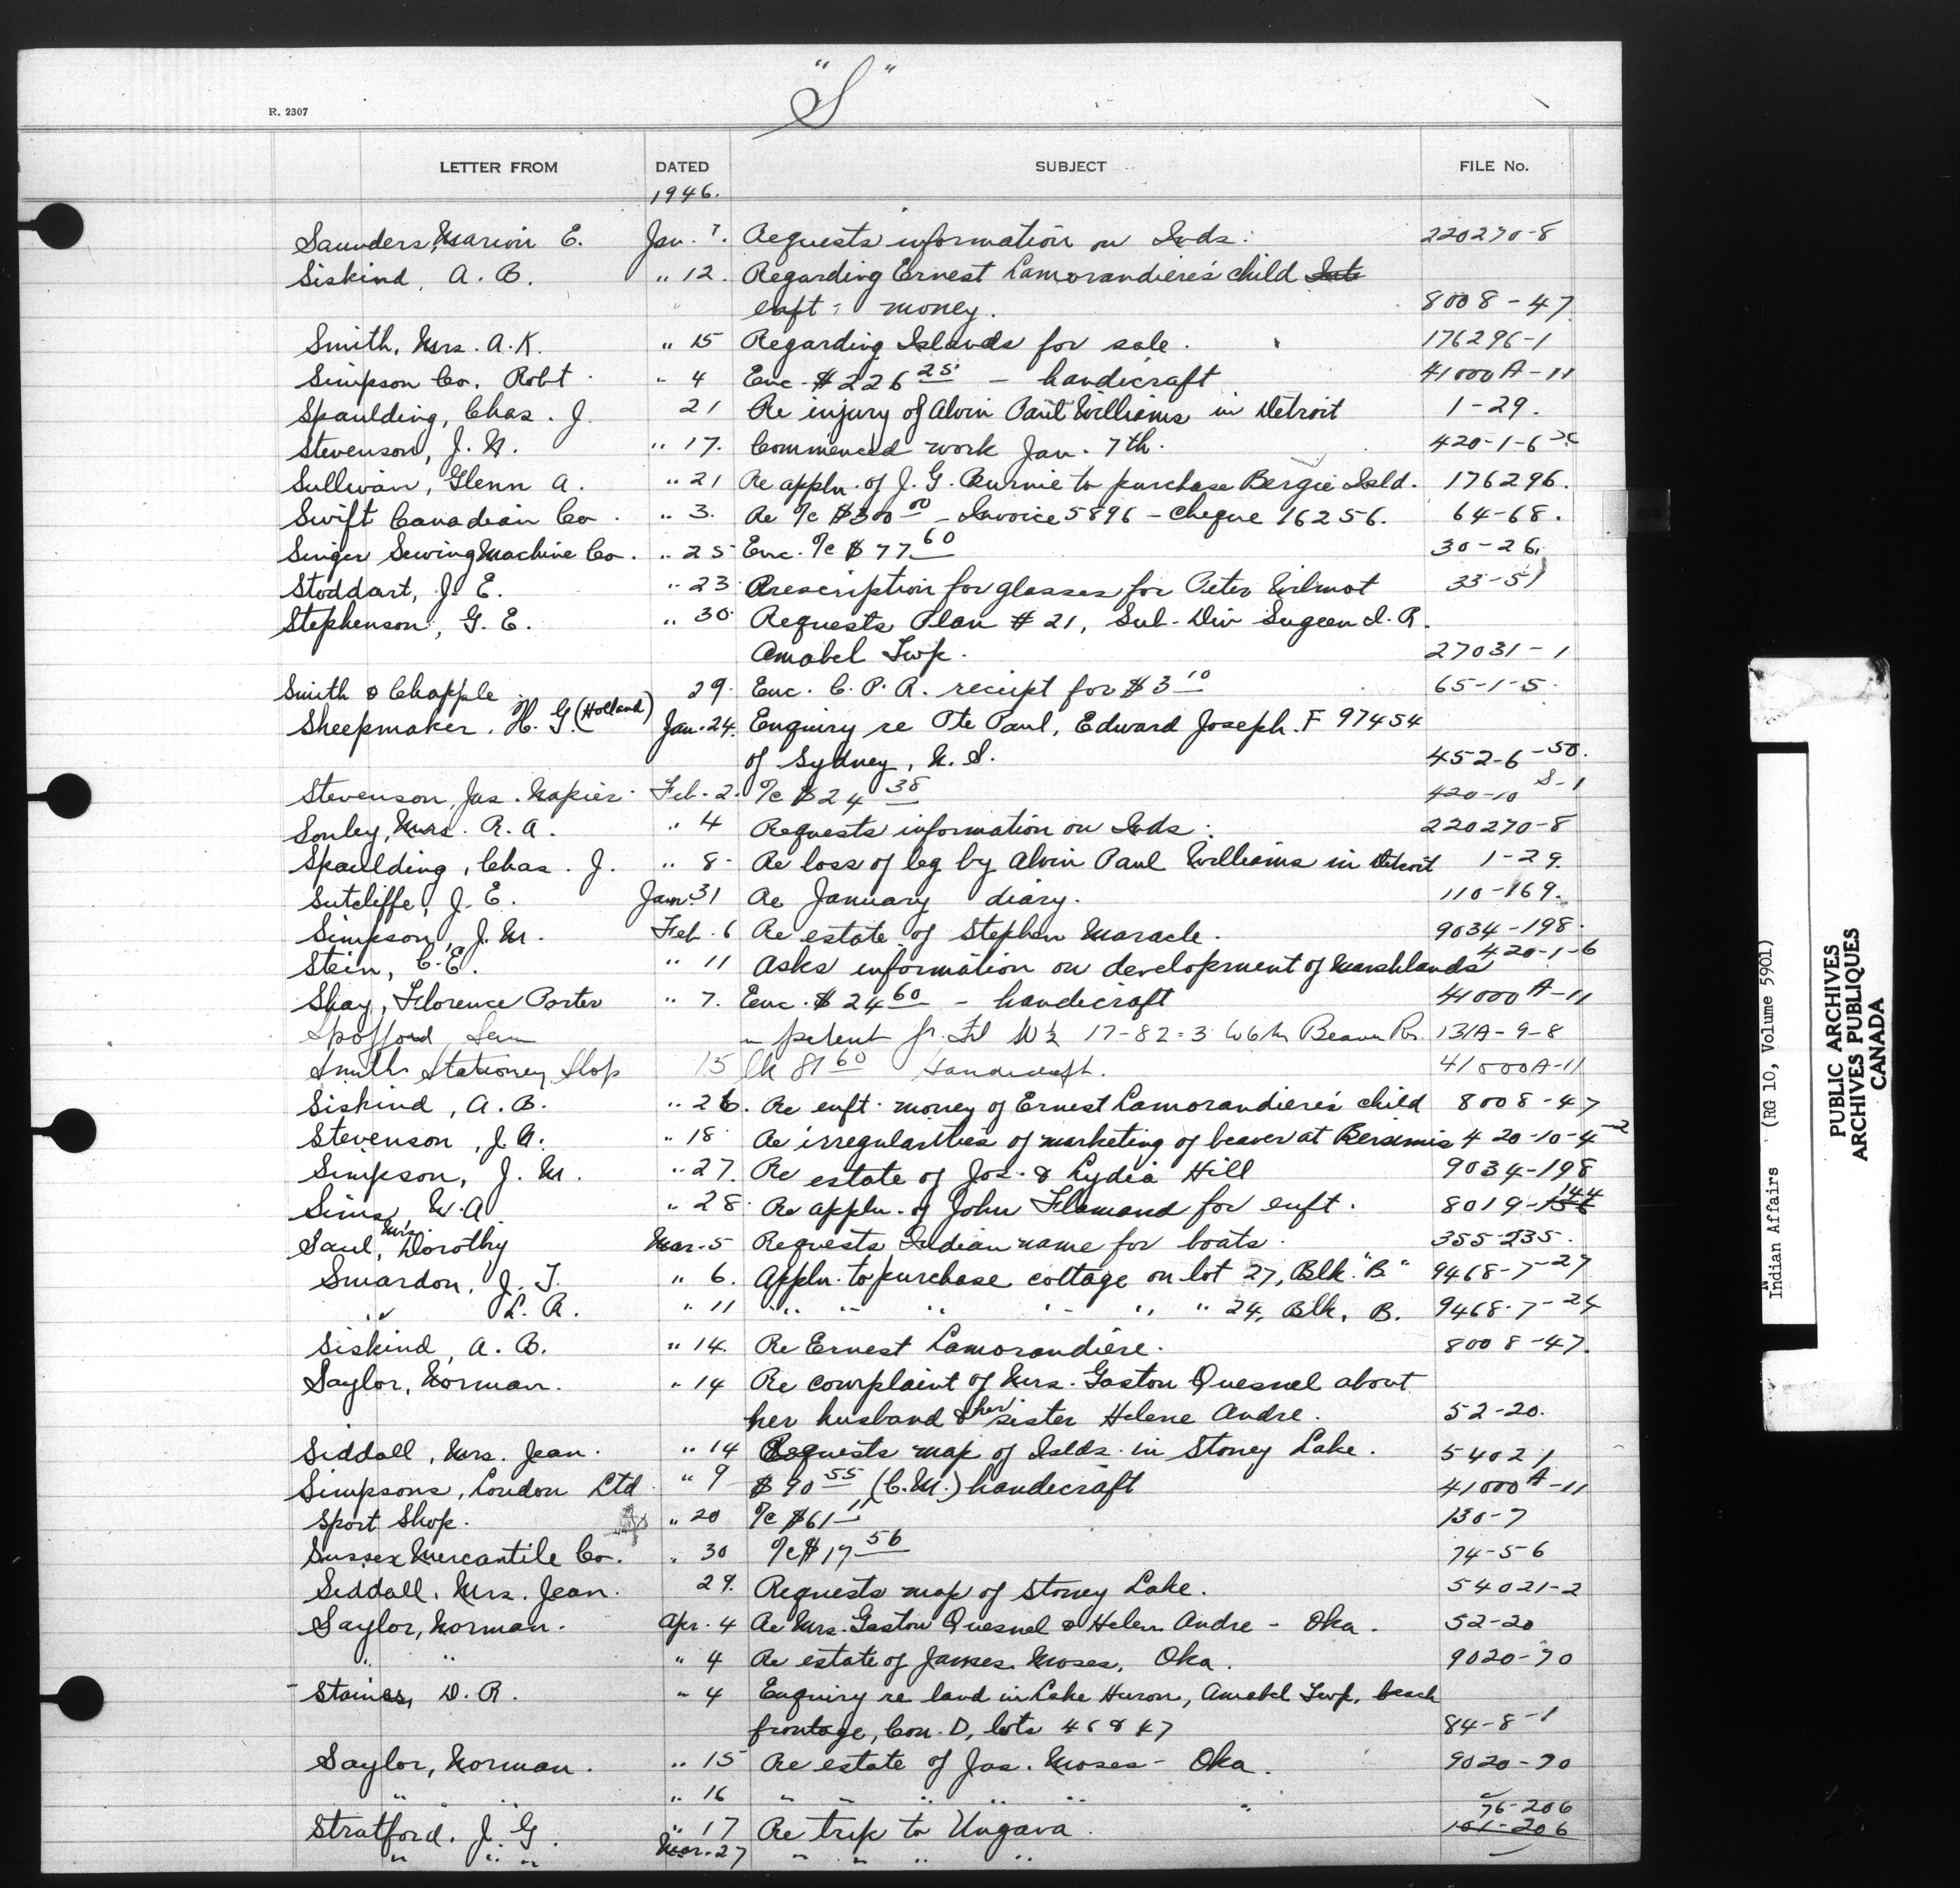 "S"
R. 2307
LETTER FROM DATED SUBJECT FILE No.
1946.
Saunders, Marion E. Jan. 7. Requests information on Inds. 220270-8
Siskind, A. B. " 12. Regarding Ernest Lamorandiere's child
enft. money. 8008-47
Smith, Mrs. A. K. " 15 Regarding Islands for sale. 176296-1
Simpson Co. Robt. " 4 Enc. $226 25 - handicraft 41000A-11
Spaulding, Chas. J. 21 Re injury of Alvin Paul Williams in Detroit 1-29.
Stevenson, J. N. " 17. Commenced work Jan. 7th. 420-1-6
Sullivan, Glenn A. " 21 Re appln. of J. G. Burnie to purchase Bergie Isld. 176296.
Swift Canadian Co. " 3. Re a/c $300 00 - Invoice 5896 - Cheque 16256. 64-68.
Singer Sewing Machine Co. " 25 Enc. a/c $77 60 30-26.
Stoddart, J. E. " 23 Prescription for glasses for Peter Wilmot 33-51
Stephenson, G. E. " 30 Requests Plan #21, Sub-Div Sugeen I. R.
Amabel Twp. 27031-1
Smith & Chapple 29. Enc. C. P. R. receipt for $3 10 65-1-5.
Sheepmaker, H. G. (Holland) Jan. 24. Enquiry re Pte Paul, Edward Joseph. F 97454
of Sydney, N. S. 452-6-50.
Stevenson, Jas. Napier Feb. 2. a/c $24 38 420-10 S-1
Sonley, Mrs. R. A. " 4 Requests information on Inds. 220270-8
Spaulding, Chas. J. " 8 Re loss of leg by Alvin Paul Williams in Detroit 1-29.
Sutcliffe, J. E. Jan. 31 Re January diary. 110-169.
Simpson, J. M. Feb. 6 Re estate of Stephen Maracle. 9034-198.
Stein, C. E. " 11 Asks information on development of Marshlands 420-1-6
Shay, Florence Porter " 7. Enc. $24 60 - handicraft 41000A-11
Spofford Sam " patent 17-82-3 W6th Beaver Rr. 131A-9-8
Smiths Stationery Shop 15 Ck 81 60 Handicraft. 41000A-11
Siskind, A. B. " 26. Re enft. money of Ernest Lamorandiere's child 8008-47
Stevenson, J. N. " 18 Re irregularities of marketing of beaver at Bersimis 420-10-4-2
Simpson, J. M. " 27. Re estate of Jos. & Lydia Hill 9034-198
Sims W. A " 28 Re appln. of John Flamand for enft. 8019-144
Saul, Mrs. Dorothy Mar. 5 Requests Indian name for boats. 355-235.
Smardon, J. T. " 6. Appln. to purchase cottage on lot 27, Blk. "B." 9468-7-27
" L. R. " 11 " " " " " " 24, Blk. B. 9468-7-24
Siskind, A. B. " 14. Re Ernest Lamorandière. 8008-47.
Saylor, Norman. " 14 Re complaint of Mrs. Gaston Quesnel about
her husband & her sister Helene Andre. 52-20.
Siddall, Mrs. Jean. " 14 Requests map of Islds. in Stoney Lake. 54021
Simpsons, London Ltd. " 9 $90 55 (C.M.) handicraft 41000A-11
Sport Shop. " 20 a/c $61 11 130-7
Sussex Mercantile Co. " 30 a/c $17 56 74-5-6
Siddall, Mrs. Jean. 29. Requests map of Stoney Lake. 54021-2
Saylor, Norman. Apr. 4 Re Mrs. Gaston Quesnel & Helen Andre - Oka. 52-20
" " " 4 Re estate of James Moses, Oka. 9020-70
Staines, D. R. " 4 Enquiry re land in Lake Huron, Amabel Twp, beach
frontage, Con. D, lots 46 & 47 84-8-1
Saylor, Norman. " 15 Re estate of Jas. Moses - Oka. 9020-70
" " " 16 " " " " " " "
Stratford, J. G. " 17 Re trip to Ungava. 76-206 101-206
" " " Mar. 27 " " " "
Indian Affairs (RG 10, Volume 5901)
PUBLIC ARCHIVES
ARCHIVES PUBLIQUES
CANADA